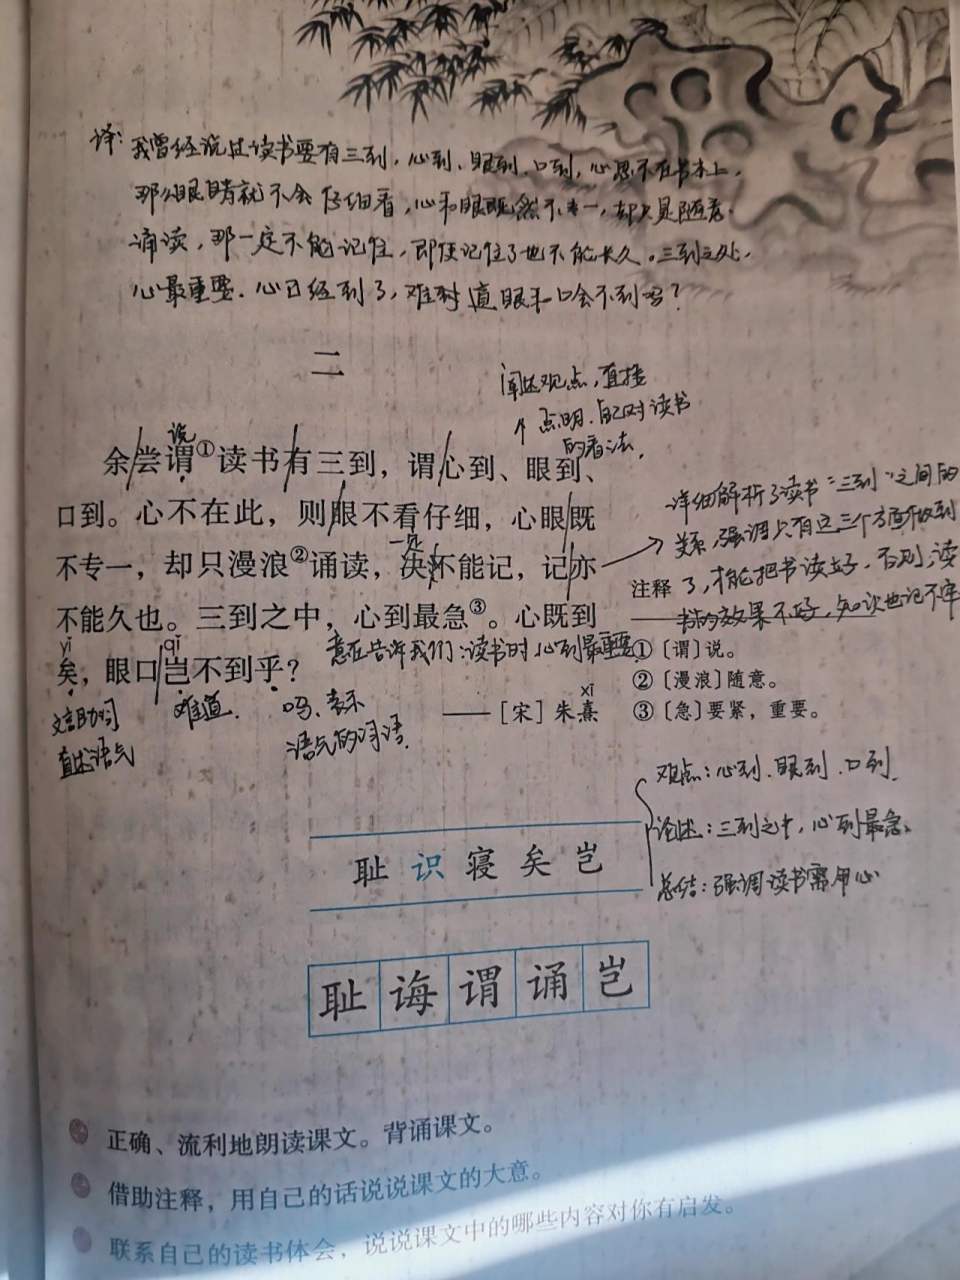 译：我曾经说过读书要有三到，心到、眼到、口到，心思不在书本上，
那么眼睛就不会仔细看，心和眼既然不专一，却只是随意
诵读，那一定不能记住，即使记住了也不能长久。三到之处，
心最重要。心已经到了，难道眼和口会不到吗？
二
阐述观点，直接
点明自己对读书
的看法。
说
余尝谓①读书有三到，谓心到、眼到、
口到。心不在此，则眼不看仔细，心眼既
一定
不专一，却只漫浪②诵读，决不能记，记亦
不能久也。三到之中，心到最急③。心既到
yǐ qǐ
矣，眼口岂不到乎？
意在告诉我们：读书时，心到最重要
文言助词
直述语气
难道
吗、表示
语气的词语
xī
——［宋］朱熹
详细解析了读书“三到”之间的
关系，强调只有这三个方面做到
了，才能把书读好，否则，读
书的效果不好，知识也记不牢
注释
①〔谓〕说。
②〔漫浪〕随意。
③〔急〕要紧，重要。
观点：心到、眼到、口到
论述：三到之中，心到最急。
总结：强调读书需用心
耻 识 寝 矣 岂
耻 诲 谓 诵 岂
正确、流利地朗读课文。背诵课文。
借助注释，用自己的话说说课文的大意。
联系自己的读书体会，说说课文中的哪些内容对你有启发。